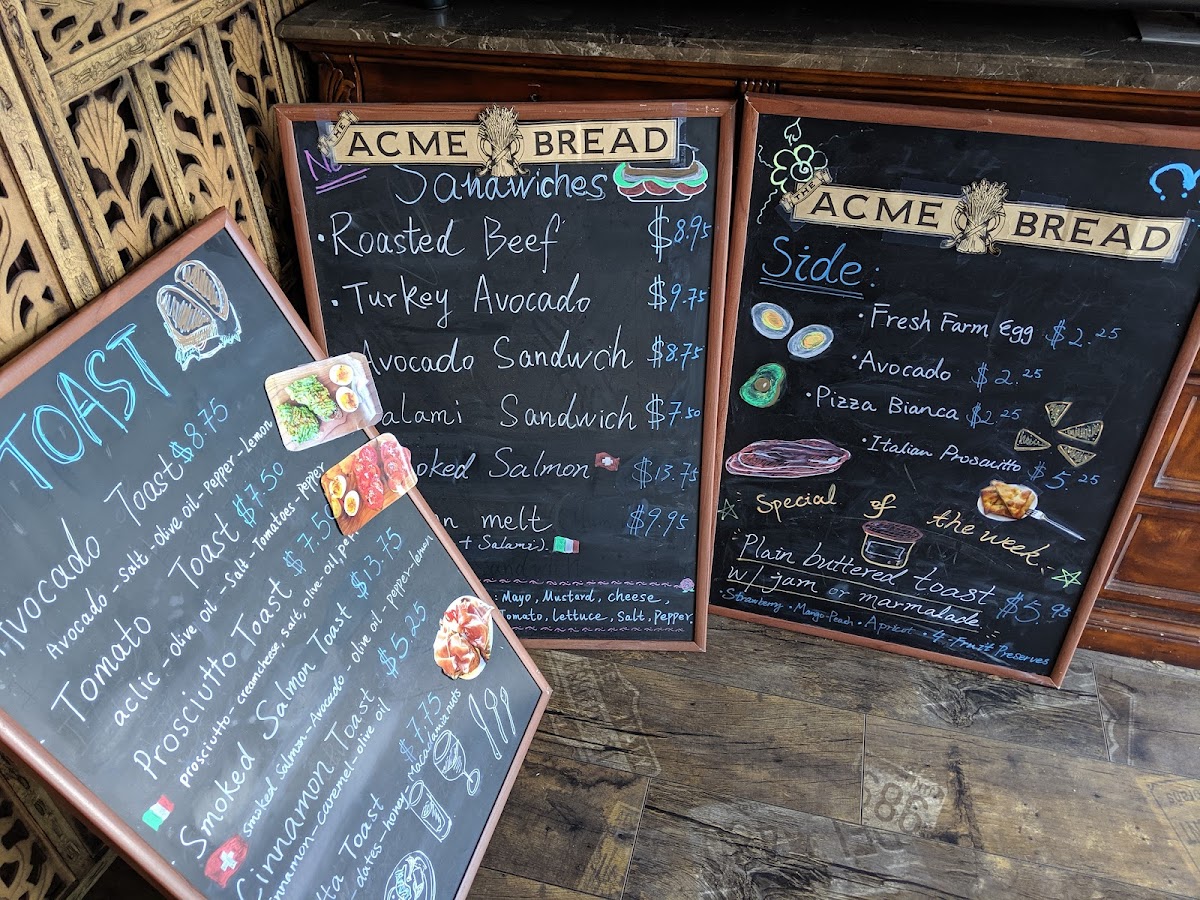 TOAST
Avocado Toast $8.75
Avocado - Salt - olive oil - Pepper - Lemon
Tomato Toast $7.50
aclic - olive oil - Salt - Tomatoes - Pepper
Prosciutto Toast $7.50
prosciutto - creamcheese, salt, olive oil,
Smoked Salmon Toast $13.75
Smoked Salmon - Avocado - olive oil - pepper - lemon
Cinnamon Toast $5.25
innamon - caremel - olive oil
Toast $7.75
dates - honey Macadamia nuts
THE ACME BREAD
Sandwiches
• Roasted Beef $8.95
• Turkey Avocado $9.75
Avocado Sandwcih $8.75
alami Sandwich $7.50
oked Salmon $13.75
melt $9.95
+ Salami).
: Mayo, Mustard, cheese,
Tomato, lettuce, Salt, Pepper
THE ACME BREAD
?
Side:
• Fresh Farm Egg $2.25
• Avocado $2.25
• Pizza Bianca $2.25
• Italian Prosciutto $5.25
Special of the week
Plain buttered toast
w/ jam or marmalade $5.95
• Strawberry • Mango Peach • Apricot • 4-Fruit Preserves